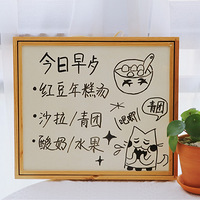 今日早点
·红豆年糕汤
·沙拉/青团
·酸奶/水果
吧唧
青团